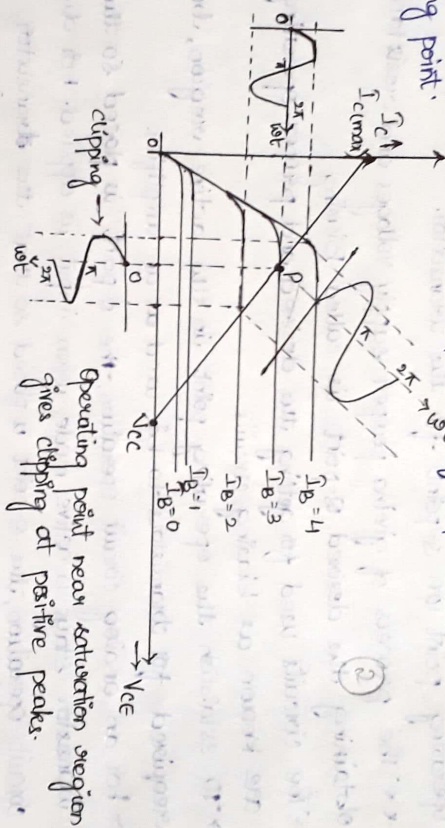 ng point.
I_C
I_C(max)
0
π
2π
ωt
π
2π
ω
P
I_B=4
I_B=3
I_B=2
I_B=1
I_B=0
0
V_CC
V_CE
clipping
0
π
2π
ωt
Operating point near saturation region
gives clipping at positive peaks.
2